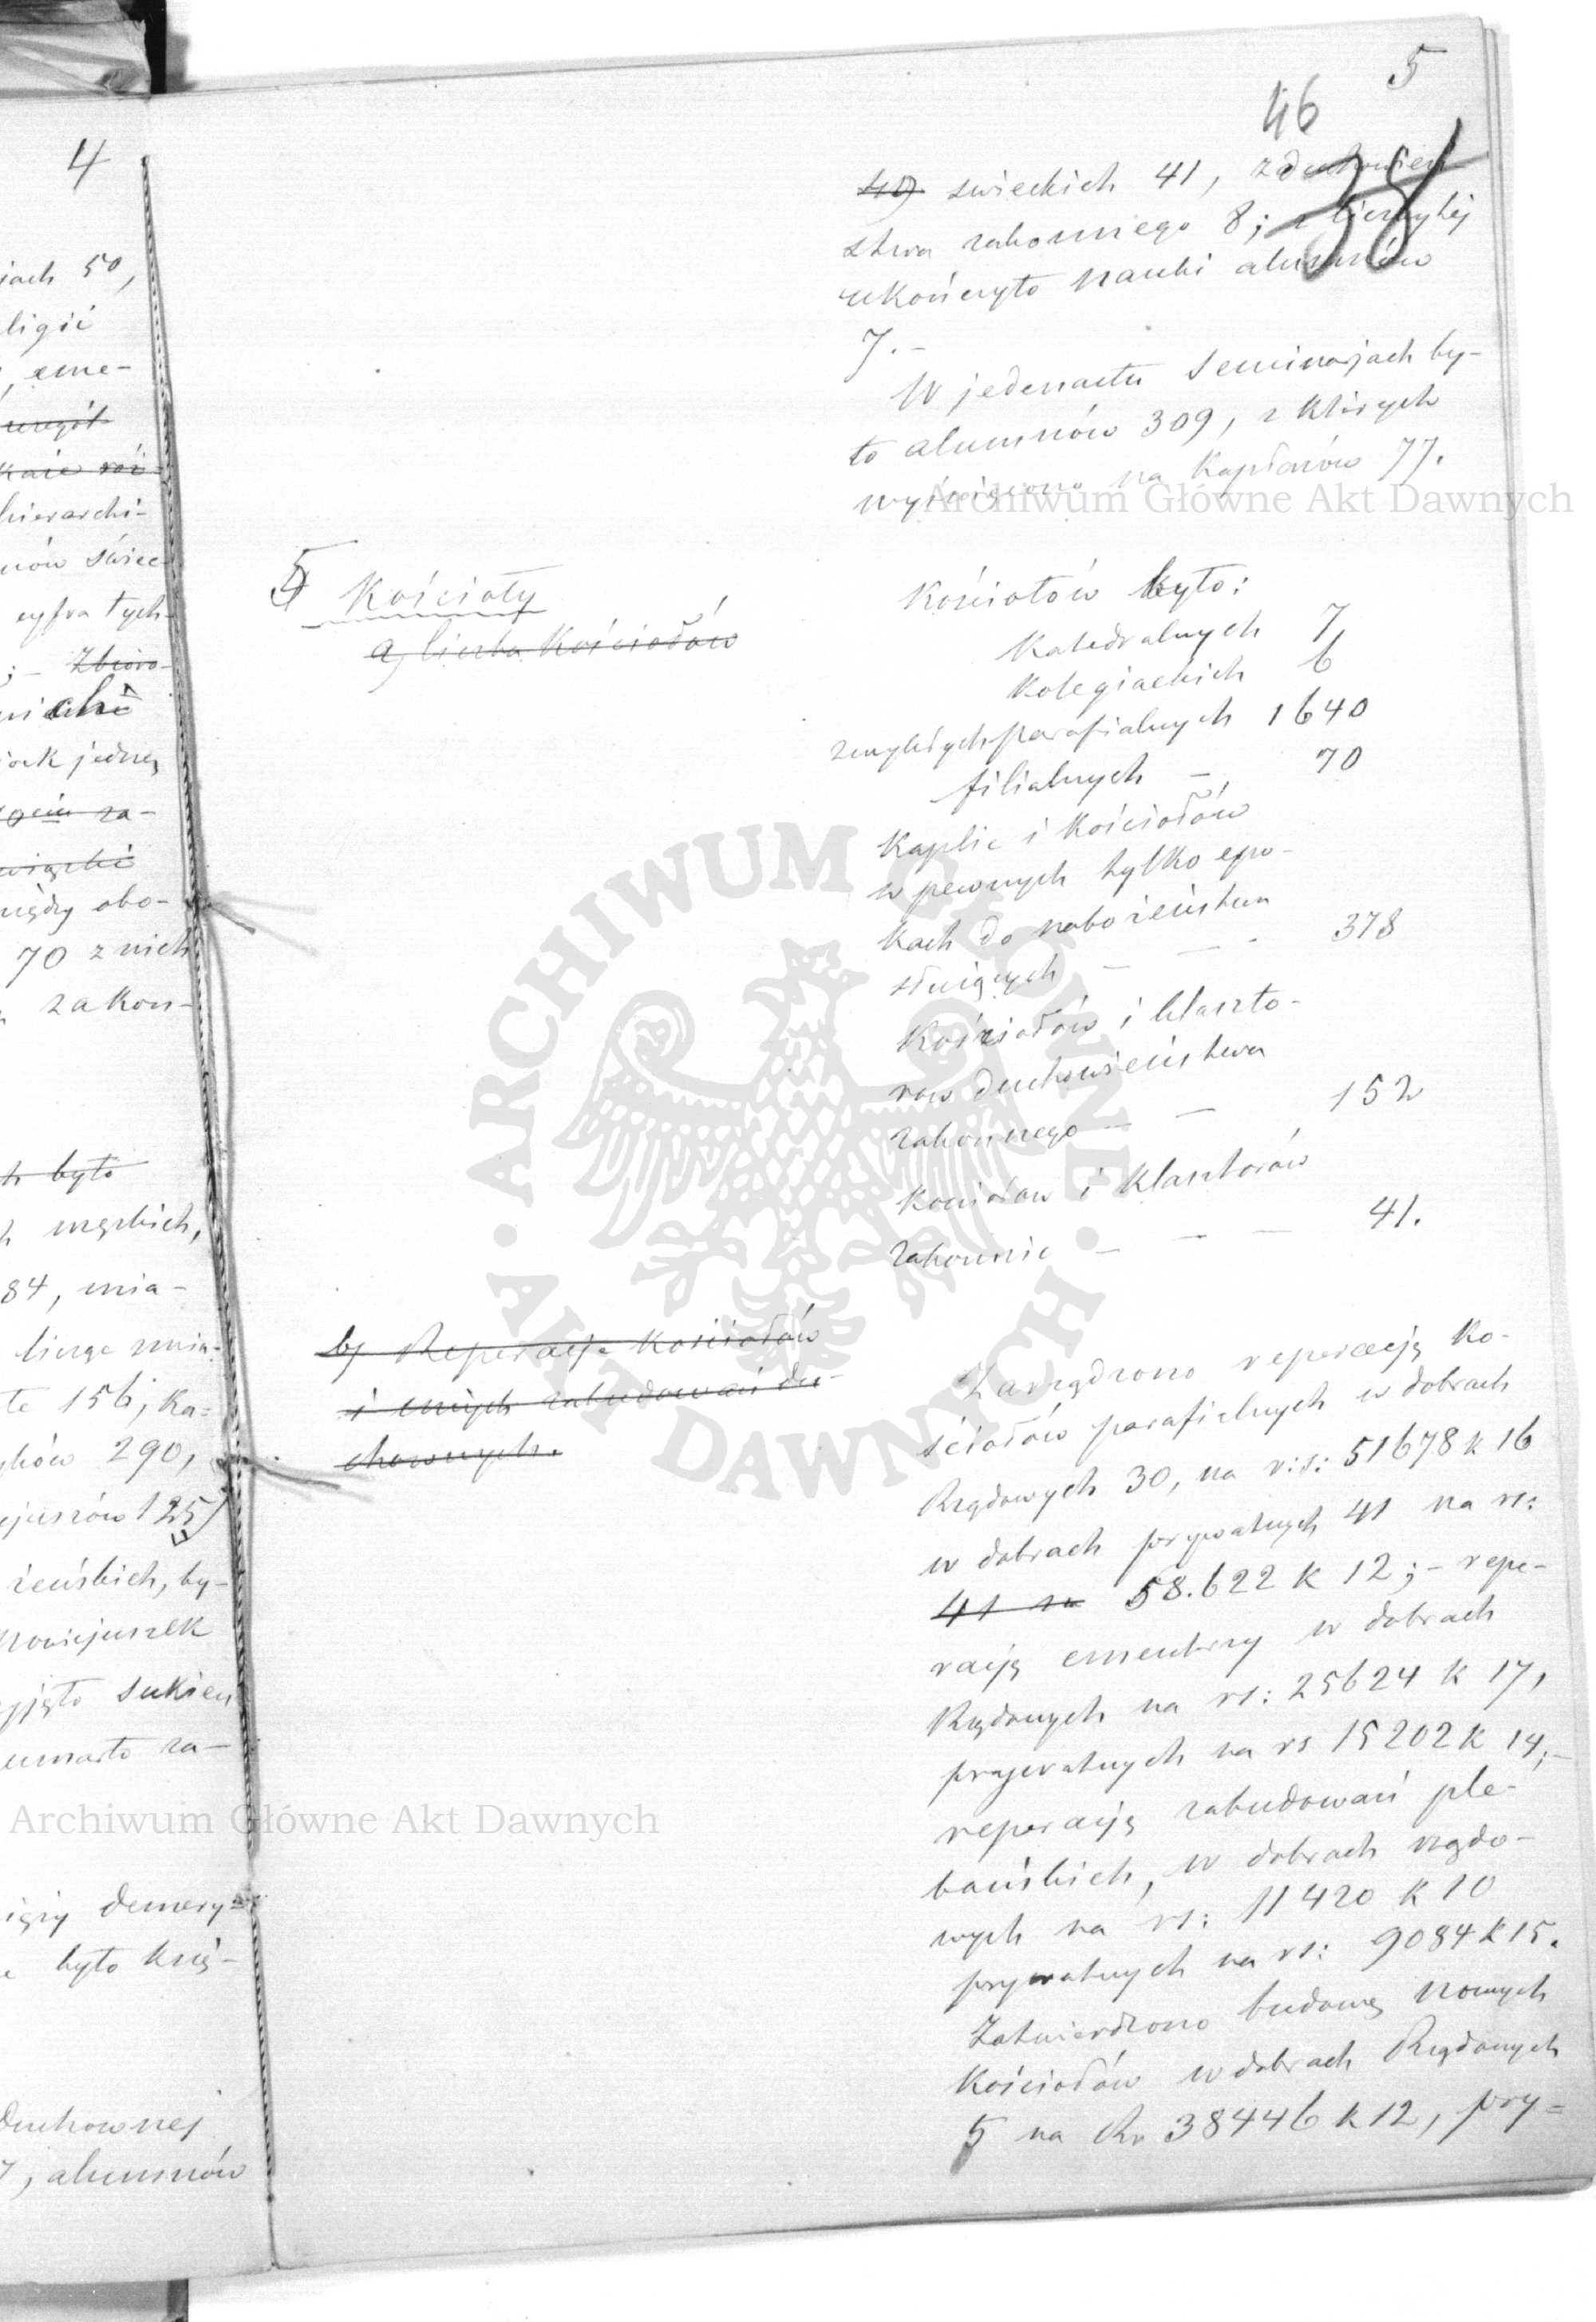 4
jach 50,
ligii
, eme-
hierarchi-
nów świec
cyfra tych
; - Zbioro-
jednej
między obo-
70 z nich
zakon-
było
męzkich,
84, mia-
te 156, Ka-
290,
125
żeńskich, by-
nowicjuszek
sukien
umarło za-
demery-
było księ-
duchownej
, alumnów
5
46
38
49 świeckich 41, z duchowień
stwa zakonnego 8; z liczby tej
ukończyło nauki alumnów
7.-
W jedenastu Seminarjach by-
ło alumnów 309, z których
wyświęcono na Kapłanów 77.
5 Kościoły
a, liczba Kościołów
Kościołów było:
Katedralnych 7,
Kolegiackich 6
zwykłych parafialnych 1640
filialnych - 70
Kaplic i Kościołów
w pewnych tylko epo-
kach do nabożeństwa
służących - - - 378
Kościołów i klaszto-
row duchowieństwa
zakonnego - - 152
Kościołow i Klasztorów
zakonnic - - - 41.
b, Reperacje Kościołów
i innych zabudowań du-
chownych.
Zarządzono reperacją Ko-
ściołów parafialnych w dobrach
Rządowych 30, na r:s: 51678 k 16
w dobrach prywatnych 41 na rs:
41 na 58.622 K 12; - repe-
racją cmentarzy w dobrach
Rządowych na rs: 25624 K 17,
prywatnych na rs 15202 K 14;-
reperacją zabudowań ple-
bańskich, w dobrach rządo-
wych na rs: 11420 K 10
prywatnych na rs: 9084 k 15.
Zatwierdzono budowę nowych
Kościołów w dobrach Rządowych
5 na Rs 38446 k 12, pry=
Archiwum Główne Akt Dawnych
Archiwum Główne Akt Dawnych
· ARCHIWUM GŁÓWNE · AKT DAWNYCH ·